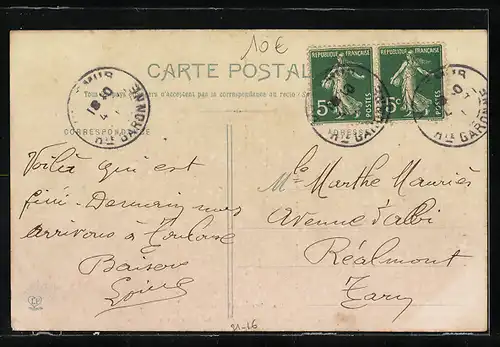 10€
CARTE POSTALE
Tous les pays étrangers n'acceptent pas la correspondance au recto
CORRESPONDANCE
ADRESSE
REPUBLIQUE FRANÇAISE
5c
POSTES
REPUBLIQUE FRANÇAISE
5c
POSTES
MUR
18 30
4
Hte GARONNE
Hte GARONNE
Hte GARONNE
Voilà qui est
fini. Demain nous
arrivons à Toulouse
Baisers
Mlle Marthe Mauriès
Avenue d'albi
Réalmont
Tarn
31-16